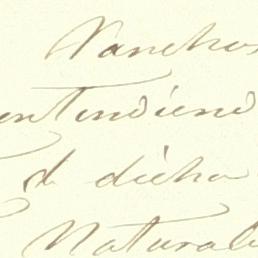 Ranchos
entendiend
d dicha
Natural